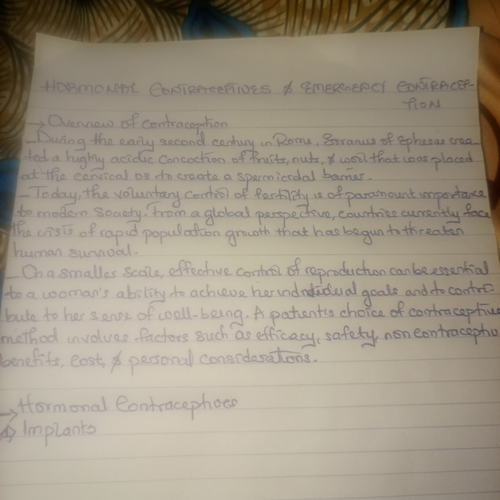 HORMONAL CONTRACEPTIVES & EMERGENCY CONTRACEP-
TION
→ Overview of contraception
– During the early second century in Rome, Soranus of Ephesus crea-
ted a highly acidic concoction of fruits, nuts, & wool that was placed
at the cervical os to create a spermicidal barrier.
– Today, the voluntary control of fertility is of paramount importance
to modern society. From a global perspective, countries currently face
the crisis of rapid population growth that has begun to threaten
human survival.
On a smaller scale, effective control of reproduction can be essential
to a woman's ability to achieve her individual goals and to contri-
bute to her sense of well-being. A patient's choice of contraceptive
method involves factors such as efficacy, safety, noncontraceptive
benefits, cost, & personal considerations.
→ Hormonal Contraceptives
Implants